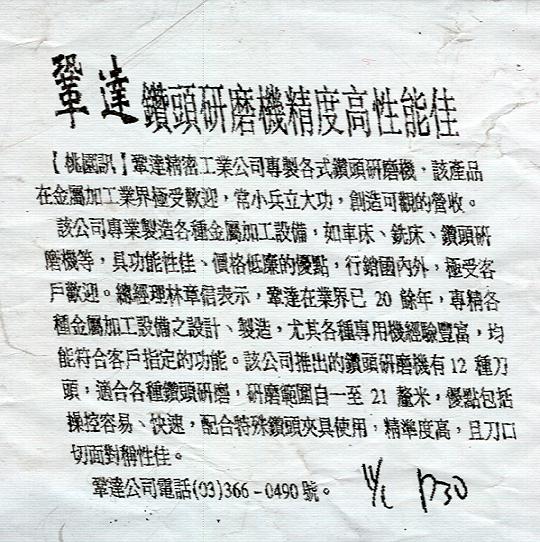 鞏達鑽頭研磨機精度高性能佳
【桃園訊】鞏達精密工業公司專製各式鑽頭研磨機，該產品
在金屬加工業界極受歡迎，常小兵立大功，創造可觀的營收。
該公司專業製造各種金屬加工設備，如車床、銑床、鑽頭研
磨機等，具功能性佳、價格低廉的優點，行銷國內外，極受客
戶歡迎。總經理林章信表示，鞏達在業界已 20 餘年，專精各
種金屬加工設備之設計、製造，尤其各種專用機經驗豐富，均
能符合客戶指定的功能。該公司推出的鑽頭研磨機有 12 種刀
頭，適合各種鑽頭研磨，研磨範圍自一至 21 釐米，優點包括
操控容易、快速，配合特殊鑽頭夾具使用，精準度高，且刀口
切面對稱性佳。
鞏達公司電話(03)366－0490 號。
P30